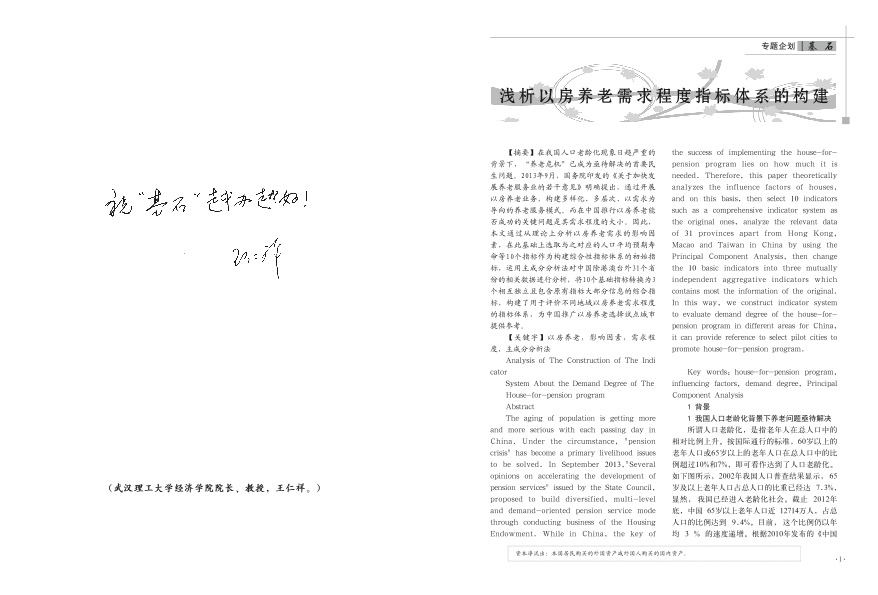 祝“基石”越办越好！
王仁祥
（武汉理工大学经济学院院长、教授，王仁祥。）
专题企划 基 石
浅析以房养老需求程度指标体系的构建
【摘要】在我国人口老龄化现象日趋严重的
背景下，“养老危机”已成为亟待解决的首要民
生问题。2013年9月，国务院印发的《关于加快发
展养老服务业的若干意见》明确提出，通过开展
以房养老业务，构建多样化、多层次，以需求为
导向的养老服务模式。而在中国推行以房养老能
否成功的关键问题是其需求程度的大小。因此，
本文通过从理论上分析以房养老需求的影响因
素，在此基础上选取与之对应的人口平均预期寿
命等10个指标作为构建综合性指标体系的初始指
标，运用主成分分析法对中国除港澳台外31个省
份的相关数据进行分析，将10个基础指标转换为3
个相互独立且包含原有指标大部分信息的综合指
标，构建了用于评价不同地域以房养老需求程度
的指标体系，为中国推广以房养老选择试点城市
提供参考。
【关键字】以房养老，影响因素，需求程
度，主成分分析法
Analysis of The Construction of The Indi
cator
System About the Demand Degree of The
House-for-pension program
Abstract
The aging of population is getting more
and more serious with each passing day in
China, Under the circumstance, "pension
crisis" has become a primary livelihood issues
to be solved. In September 2013,"Several
opinions on accelerating the development of
pension services" issued by the State Council,
proposed to build diversified, multi-level
and demand-oriented pension service mode
through conducting business of the Housing
Endowment. While in China, the key of
the success of implementing the house-for-
pension program lies on how much it is
needed. Therefore, this paper theoretically
analyzes the influence factors of houses,
and on this basis, then select 10 indicators
such as a comprehensive indicator system as
the original ones, analyze the relevant data
of 31 provinces apart from Hong Kong,
Macao and Taiwan in China by using the
Principal Component Analysis, then change
the 10 basic indicators into three mutually
independent aggregative indicators which
contains most the information of the original.
In this way, we construct indicator system
to evaluate demand degree of the house-for-
pension program in different areas for China,
it can provide reference to select pilot cities to
promote house-for-pension program.
Key words: house-for-pension program,
influencing factors, demand degree, Principal
Component Analysis
1 背景
1 我国人口老龄化背景下养老问题亟待解决
所谓人口老龄化，是指老年人在总人口中的
相对比例上升。按国际通行的标准，60岁以上的
老年人口或65岁以上的老年人口在总人口中的比
例超过10%和7%，即可看作达到了人口老龄化。
如下图所示，2002年我国人口普查结果显示，65
岁及以上老年人口占总人口的比重已经达 7.3%，
显然， 我国已经进入老龄化社会。截止 2012年
底，中国 65岁以上老年人口近 12714万人，占总
人口的比例达到 9.4%。目前， 这个比例仍以年
均 3 % 的速度递增。根据2010年发布的《中国
资本净流出：本国居民购买的外国资产减外国人购买的国内资产。
· 1 ·